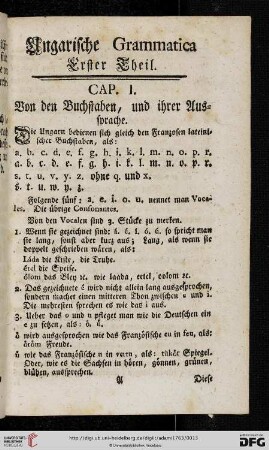 Ungarische Grammatica
Erster Theil.
CAP. I.
Von den Buchstaben, und ihrer Aus-
sprache.
Die Ungarn bedienen sich gleich den Franzosen lateini-
scher Buchstaben, als:
a. b. c. d. e. f. g. h. i. k. l. m. n. o. p. r.
a. b. c. d. e. f. g. h. i. k. l. m. n. o. p. r.
s. t. u. v. y. z. ohne q. und x.
s. t. u. w. y. z.
Folgende fünf: a. e. i. o. u. nennet man Voca-
les. Die übrige Consonantes.
Von den Vocalen sind 3. Stücke zu merken.
1. Wenn sie gezeichnet sind: á. é. í. ó. ú. so spricht man
sie lang, sonst aber kurz aus; Lang, als wenn sie
doppelt geschrieben wären, als:
Láda die Kiste, die Truhe.
étel die Speise.
ólom das Bley ꝛc. wie laada, eetel, oolom ꝛc.
2. Das gezeichnete é wird nicht allein lang ausgesprochen,
sondern machet einen mittern Thon zwischen e und i.
Die mehresten sprechen es wie das i aus.
3. Ueber das o und u pfleget man wie die Deutschen ein
e zu setzen, als: ö. ü.
ö wird ausgesprochen wie das Französische eu in feu, als:
öröm Freude.
ü wie das Französische u in vertu, als: tükör Spiegel.
Oder, wie es die Sachsen in hören, gönnen, grünen,
blühen, aussprechen.
A Diese
http://digi.ub.uni-heidelberg.de/diglit/adami1763/0013
© Universitätsbibliothek Heidelberg
gefördert durch die
DFG
UNIVERSITÄTS-
BIBLIOTHEK
HEIDELBERG